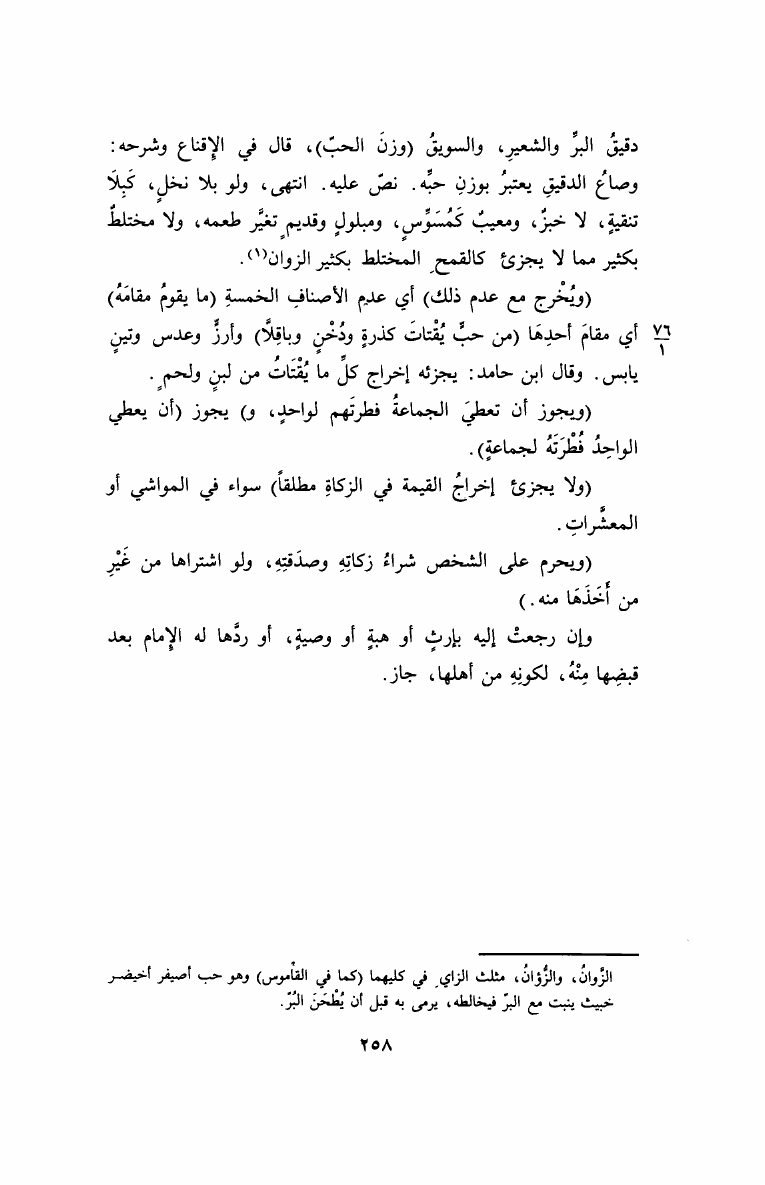 دقيقُ البرِّ والشعيرِ، والسويقُ (وزنَ الحبّ)، قال في الإِقناع وشرحه:
وصاعُ الدقيقِ يعتبرُ بوزنِ حبِّه. نصّ عليه. انتهى، ولو بلا نخلٍ، كَبِلَا
تنقيةٍ، لا خبزٌ، ومعيبٌ كَمُسَوِّسٍ، ومبلولٍ وقديمٍ تغيَّر طعمه، ولا مختلطٌ
بكثير مما لا يجزئ كالقمحِ المختلط بكثير الزوان(١).
(ويُخْرج مع عدم ذلك) أي عدمِ الأصنافِ الخمسةِ (ما يقومُ مقامَهُ)
أي مقامَ أحدِهَا (من حبٍّ يُقْتاتَ كذرةٍ ودُخْنٍ وباقِلَّا) وأرزٍّ وعدس وتينٍ
٧٦
١
يابس. وقال ابن حامد: يجزئه إخراج كلِّ ما يُقْتَاتُ من لبنٍ ولحمٍ.
(ويجوز أن تعطيَ الجماعةُ فطرتَهم لواحدٍ، و) يجوز (أن يعطي
الواحِدُ فُطْرَتَهُ لجماعةٍ).
(ولا يجزئ إخراجُ القيمة في الزكاةِ مطلقاً) سواء في المواشي أو
المعشَّراتِ.
(ويحرم على الشخص شراءُ زكاتِهِ وصدَقتِهِ، ولو اشتراها من غَيْرِ
من أَخَذَهَا منه.)
وإن رجعتْ إليه بإرثٍ أو هبةٍ أو وصيةٍ، أو ردَّها له الإِمام بعد
قبضِها مِنْهُ، لكونِهِ من أهلها، جاز.
الزُوانُ، والزُؤانُ، مثلث الزاي في كليهما (كما في القأموس) وهو حب أصيفر أخيضر
خبيث ينبت مع البرّ فيخالطه، يرمى به قبل أن يُطْحَنَ البُرّ.
٢٥٨